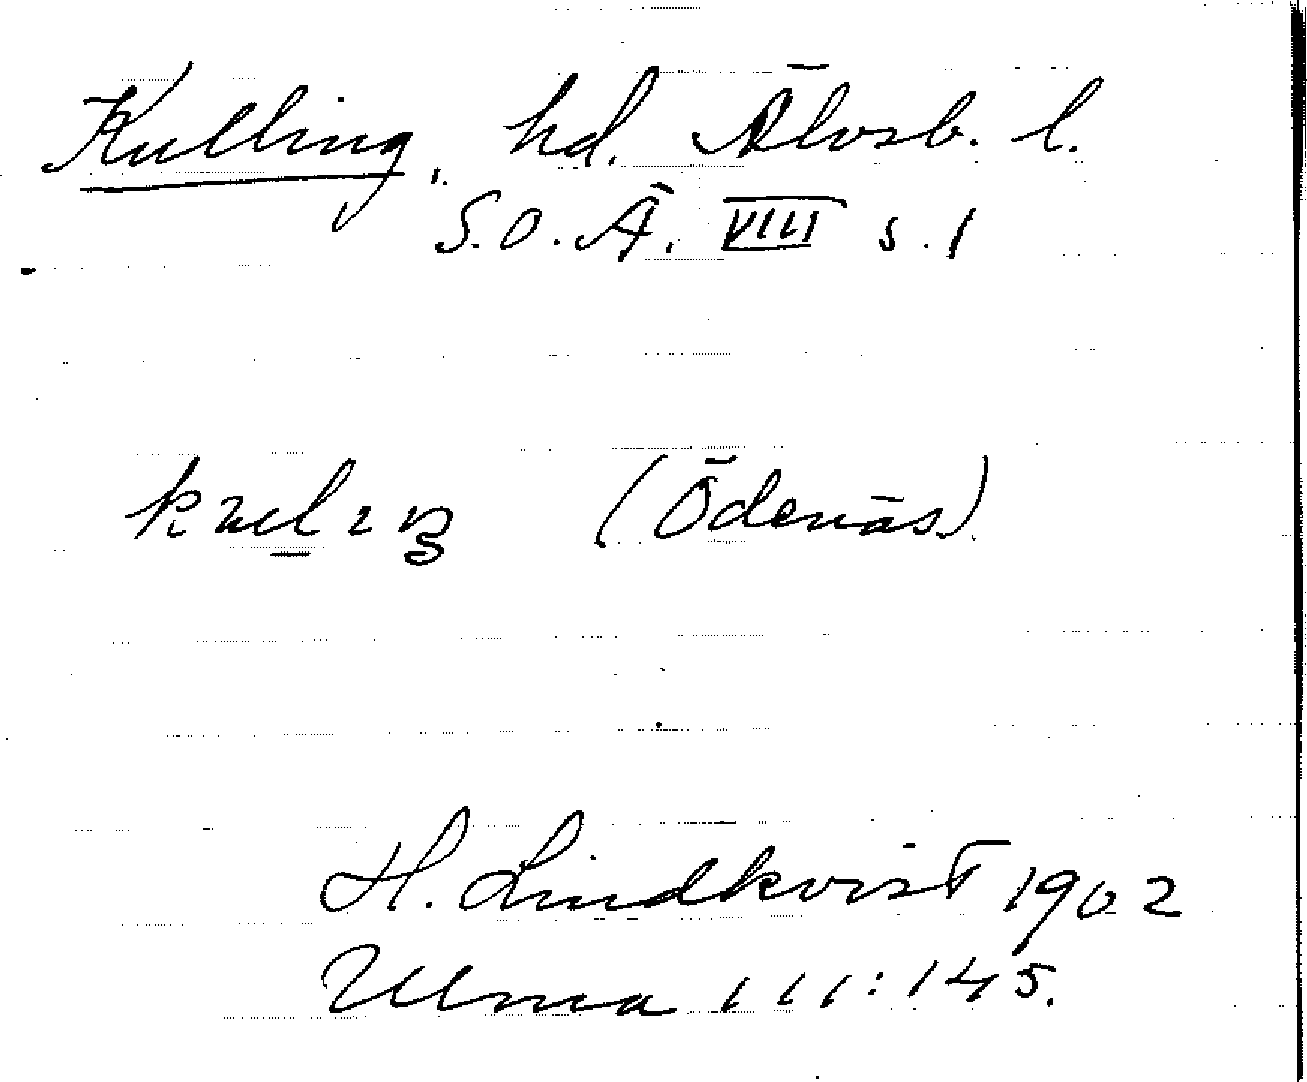 Kulling, hd. Älvsb. l.
S.O.Ä. VIII s. 1
(Ödenäs)
H. Lindkvist 1902
Ulma 111:145.